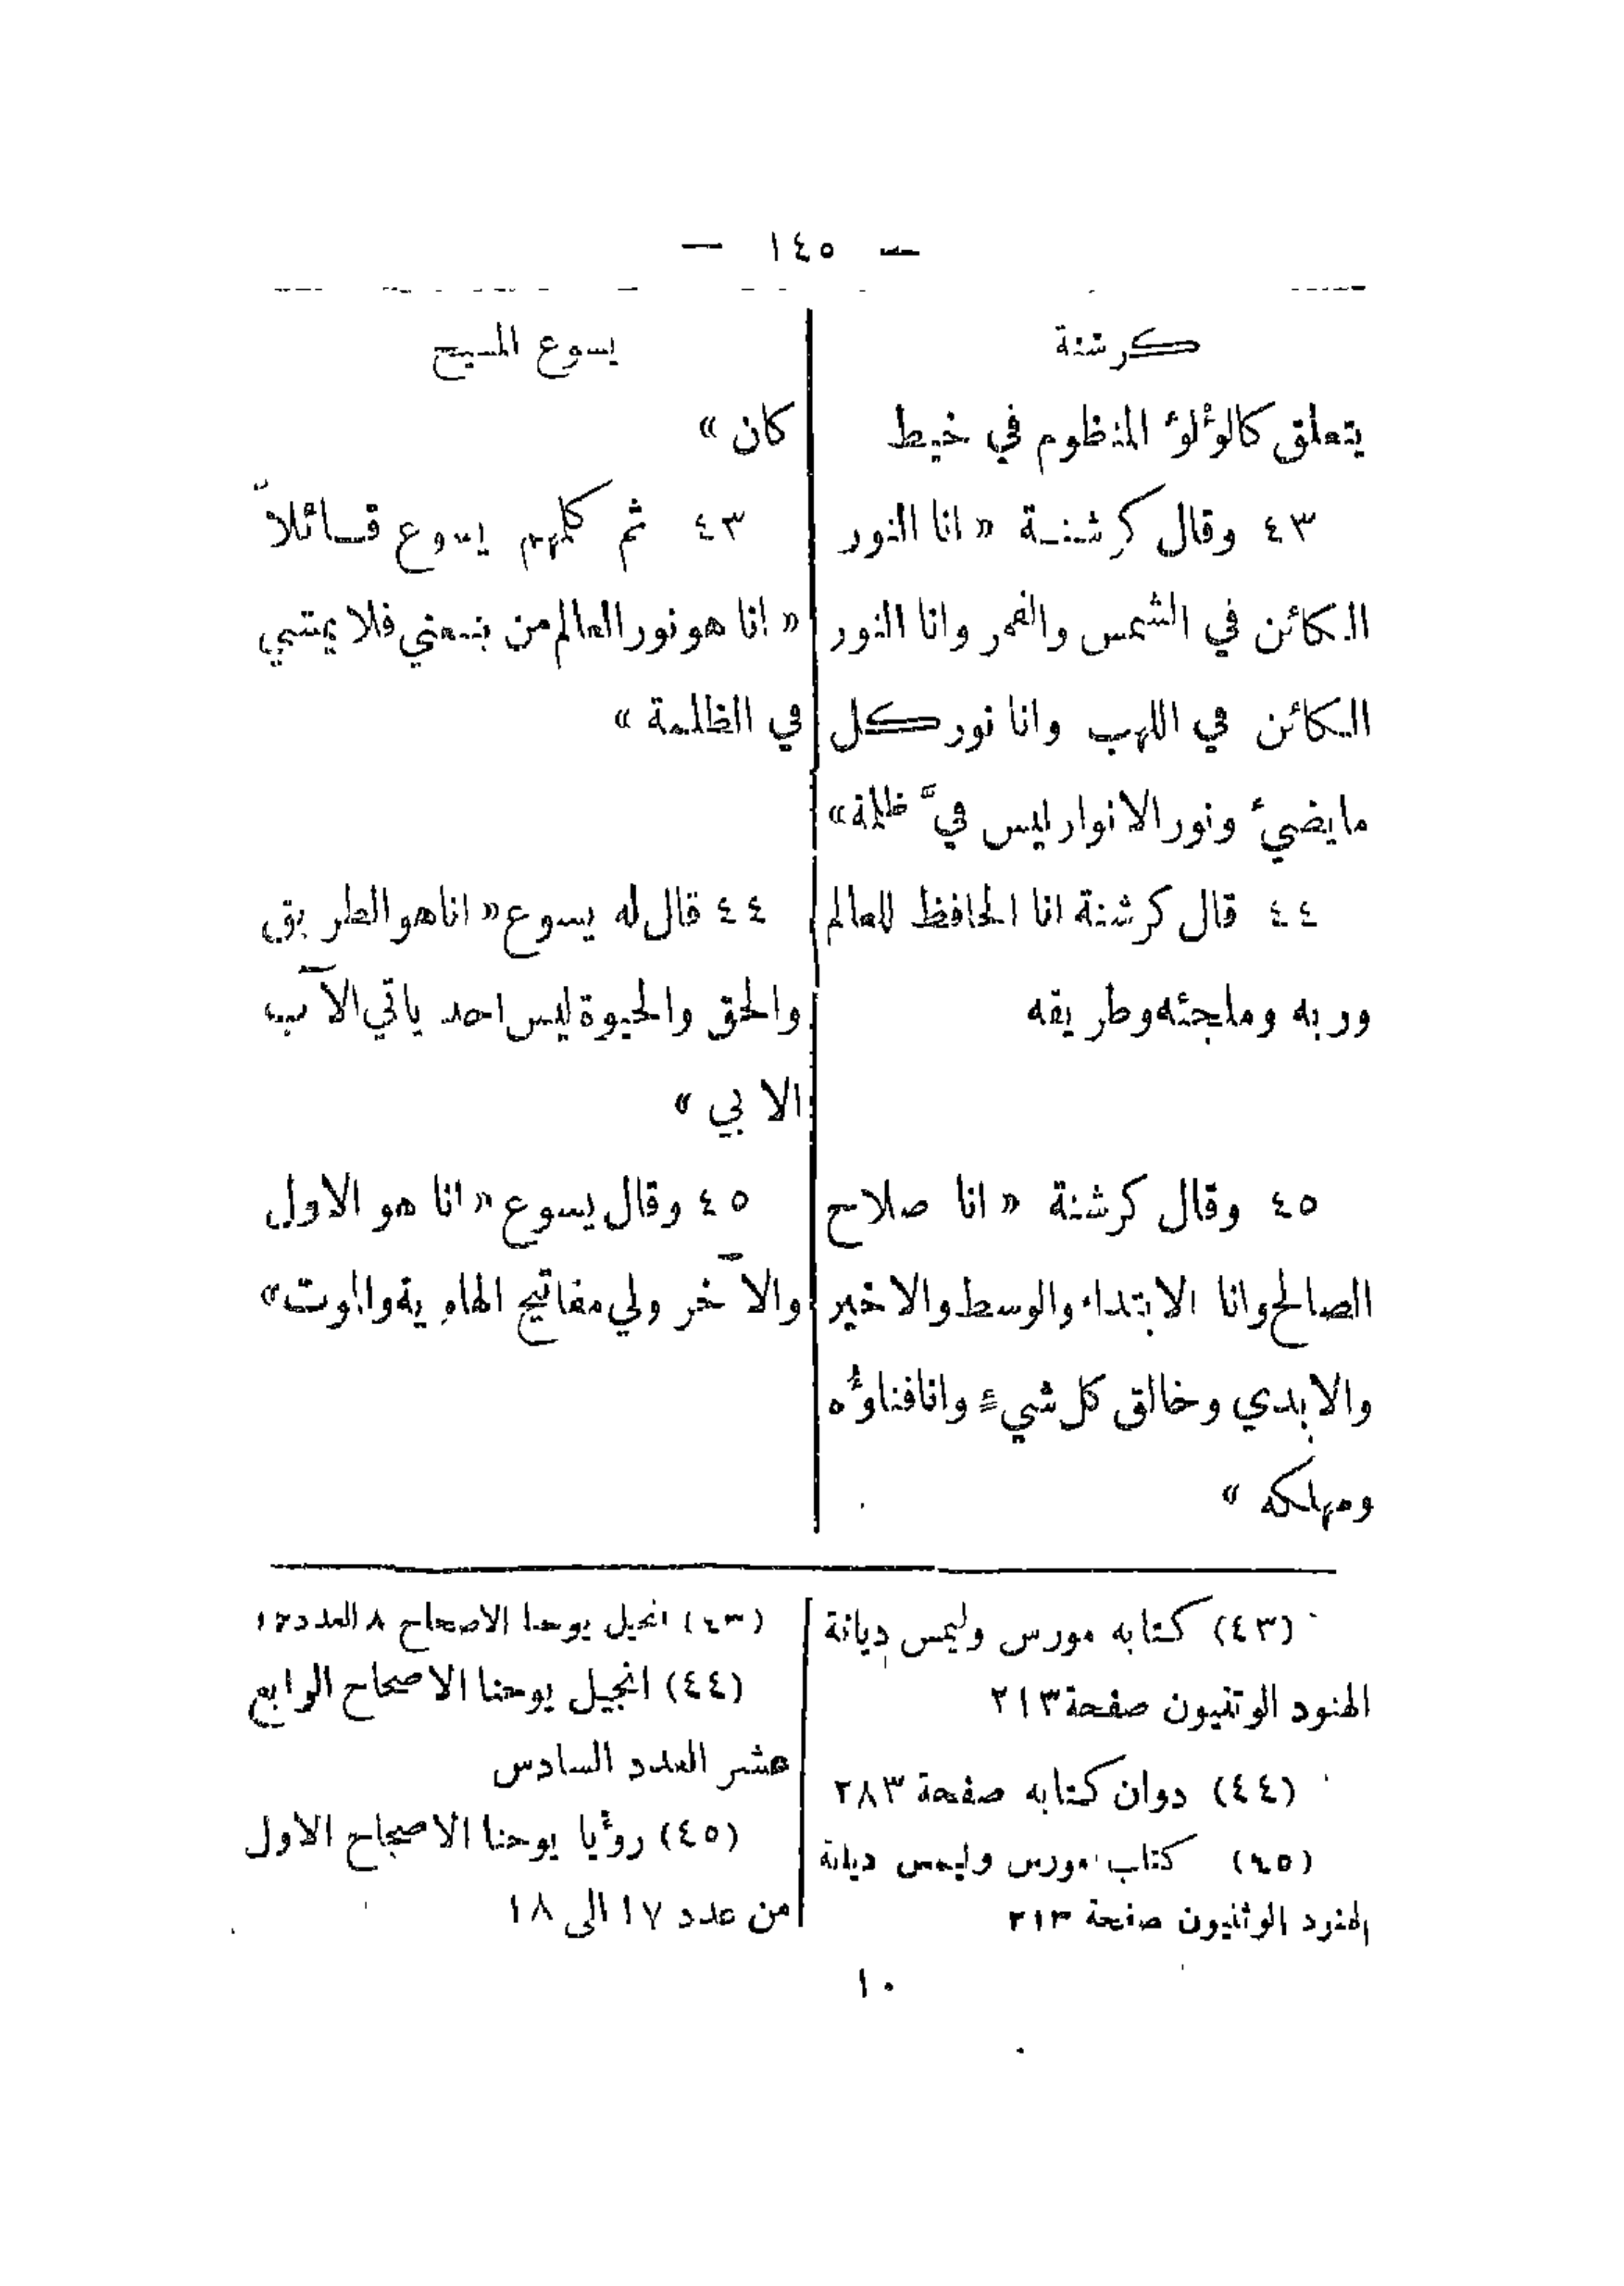 — ١٤٥ —
كرشنة
يتعلق كالوٴلوٴ المنظوم في خيط
٤٣ وقال كرشنة « انا النور
الكائن في الشمس والقمر وانا النور
الكائن في اللهب وانا نور كل
ما يضيٴ ونور الانوار ليس فيَّ ظلمة»
٤٤ قال كرشنة انا الحافظ للعالم
وربه وملجئه وطريقه
٤٥ وقال كرشنة « انا صلاح
الصالح وانا الابتداء والوسط والاخير
والابدي وخالق كل شيءٍ وانا فناوُٴه
ومهلكه »
يسوع المسيح
كان »
٤٣ ثم كلمهم يسوع قائلاً
« انا هو نور العالم من يتبعني فلا يمشي
في الظلمة »
٤٤ قال له يسوع « انا هو الطريق
والحق والحيوة ليس احد ياتي الآب
الا بي »
٤٥ وقال يسوع « انا هو الاول
والآخر ولي مفاتيح الهاوية والموت»
(٤٣) كتابه مورس وليمس ديانة
الهنود الوثنيون صفحة ٢١٣
(٤٤) دوان كتابه صفحة ٢٨٣
(٤٥) كتاب مورس وليمس ديانة
الهنود الوثنيون صفحة ٢١٣
(٤٣) انجيل يوحنا الاصحاح ٨ العدد
(٤٤) انجيل يوحنا الاصحاح الرابع
عشر العدد السادس
(٤٥) روٴيا يوحنا الاصحاح الاول
من عدد ١٧ الى ١٨
١٠